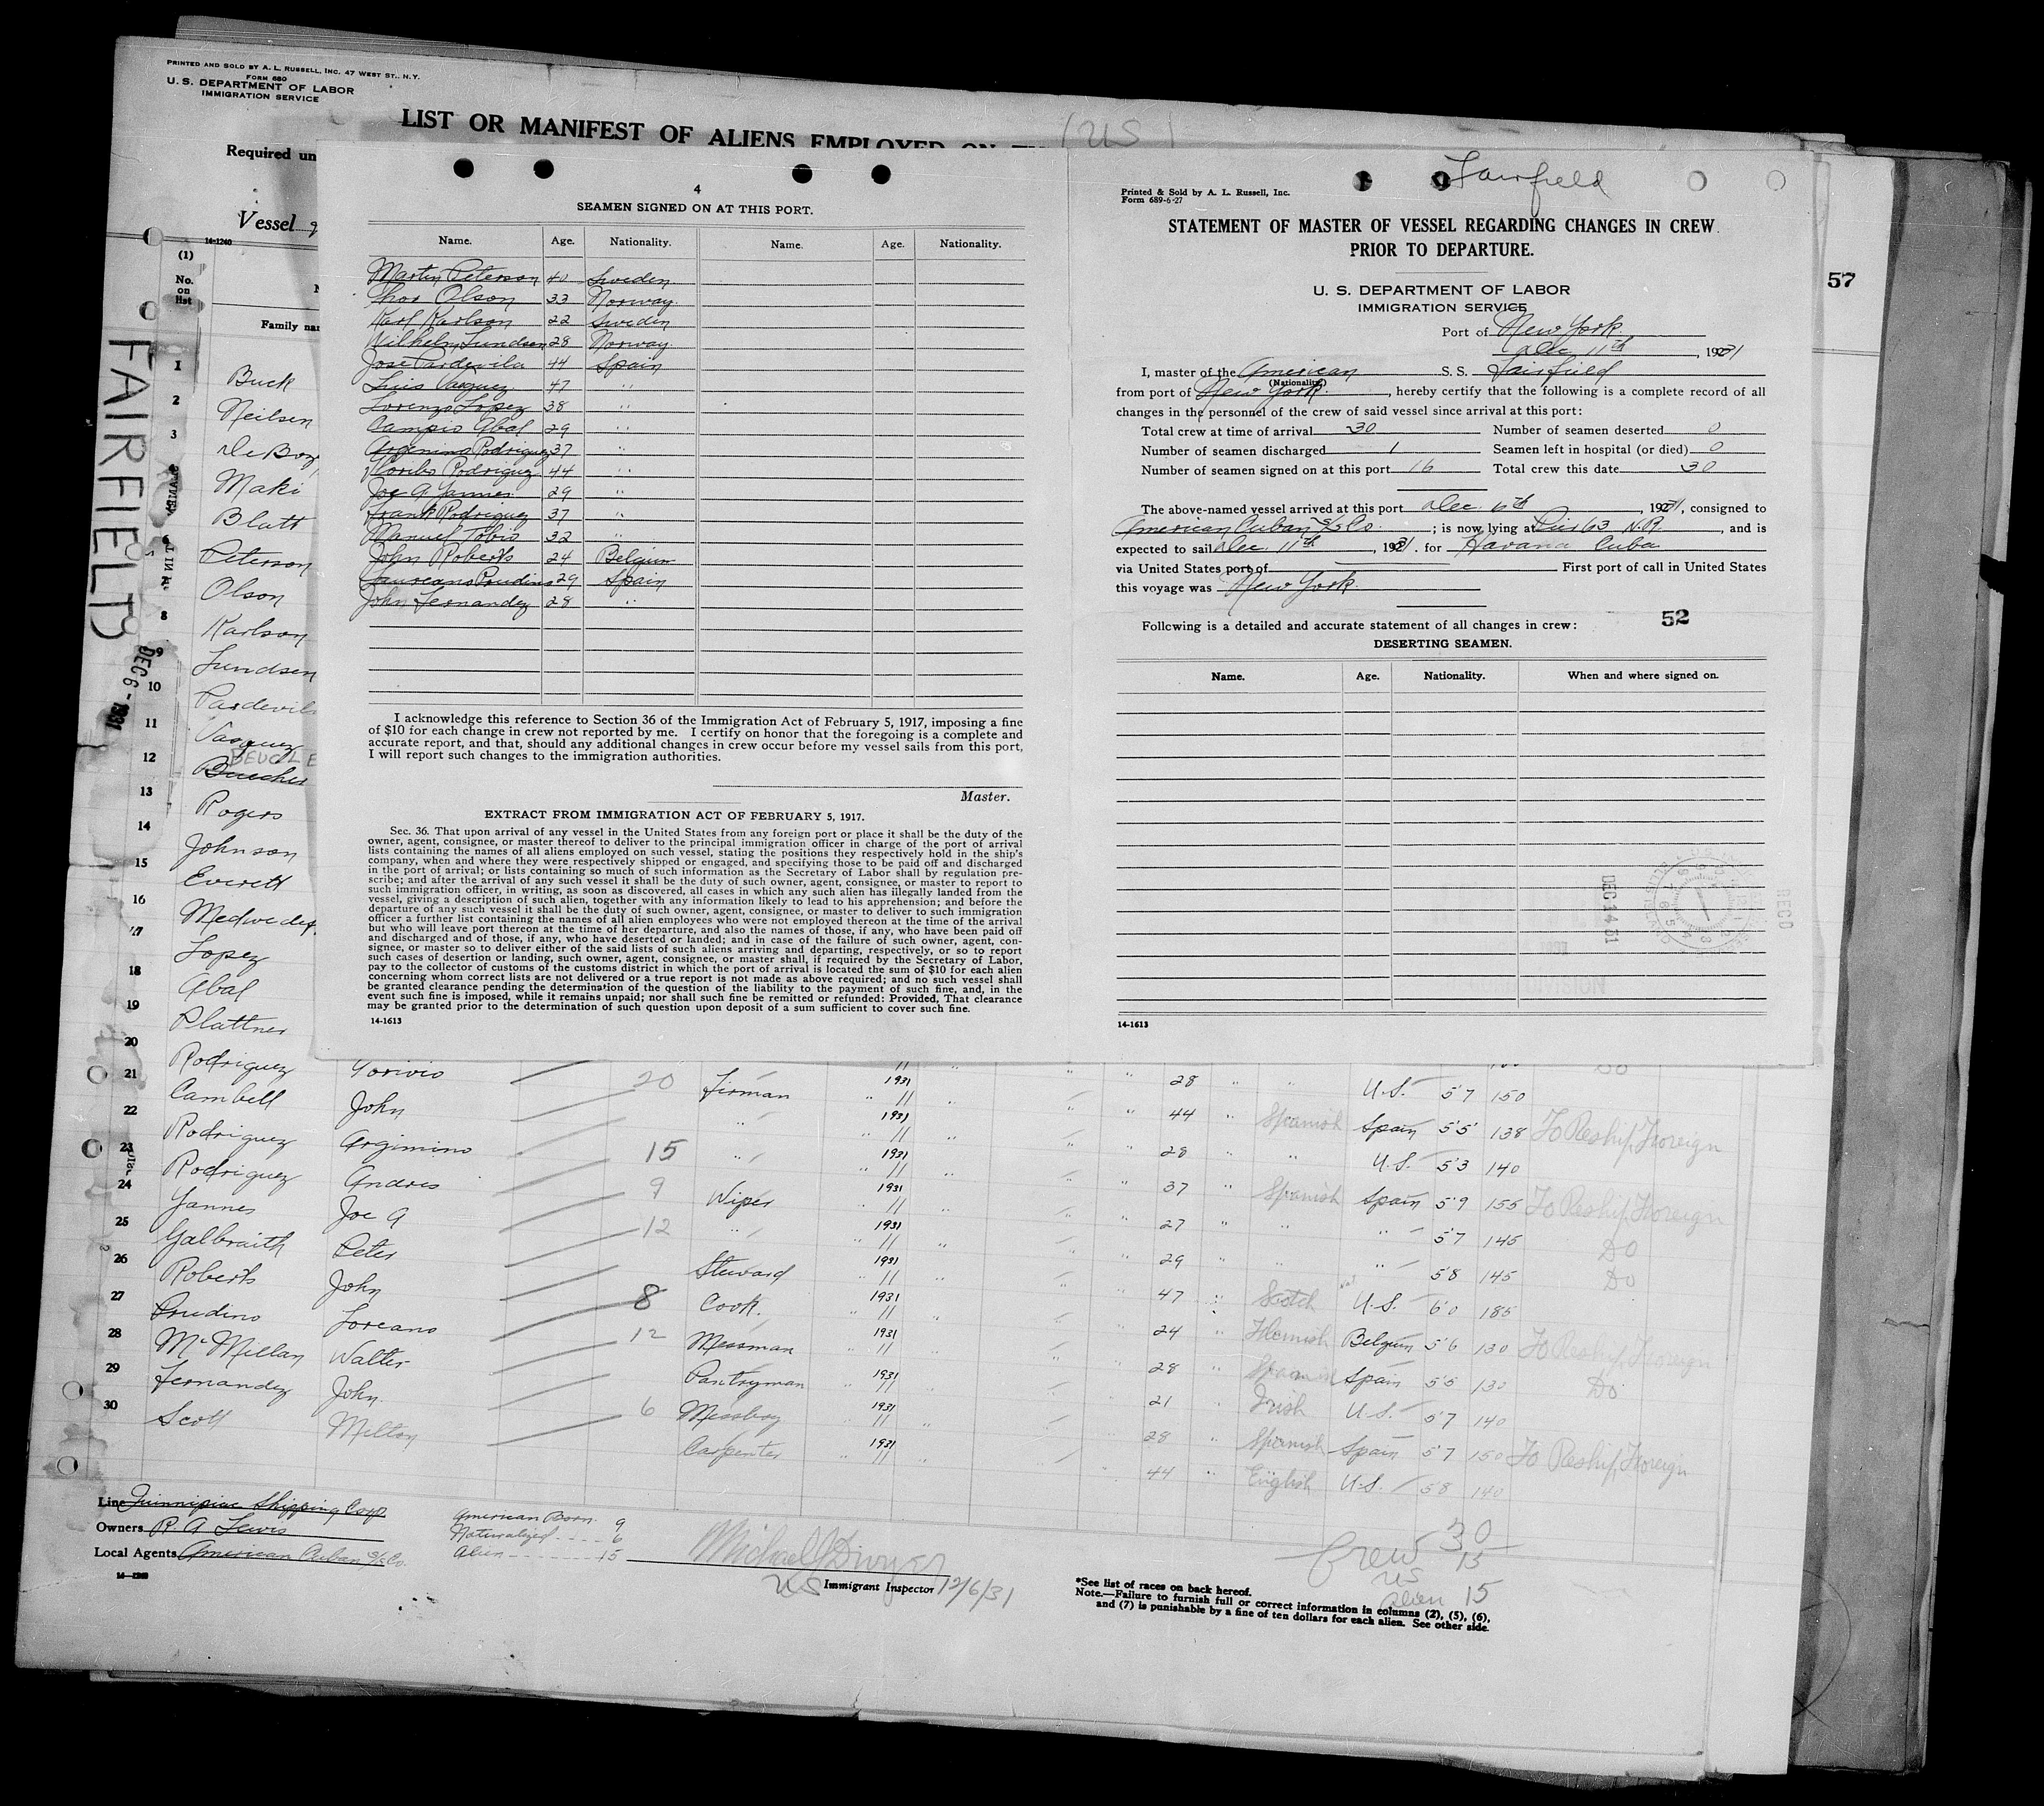 PRINTED AND SOLD BY A. L. RUSSELL, INC. 47 WEST ST., N.Y.
FORM 680
U. S. DEPARTMENT OF LABOR
IMMIGRATION SERVICE
LIST OR MANIFEST OF ALIENS EMPLOYED ON
(US)
Required un
Vessel
14-1240
(1)
No. on list
Family nam
57
FAIRFIELD
DEC 6 - 1931
1 Buck
2 Neilsen
3 De Boy
Maki
Blatt
Peterson
Olson
8 Karlson
9 Lundsen
10 Pardevil
11 Vasquez
BEUCLE
12 Buecher
13 Rogers
14 Johnson
15 Everett
16 Medwedef
17 Lopez
18 Abal
19 Plattner
20 Rodriguez Gorivio 20 Firman 1931 28 U.S. 5'7 150
21 Cambell John 1931 44 Spanish Spain 5'5 138 To Reship Foreign
22 Rodriguez Argimino 15 1931 28 U.S. 5'3 140
23 Rodriguez Andres 9 Wiper 1931 37 Spanish Spain 5'9 155 To Reship Foreign
24 Yannes Joe A 12 1931 27 5'7 145 Do
25 Galbraith Peter Steward 1931 29 5'8 145 Do
26 Roberts John 8 Cook 1931 47 Scotch U.S. 6'0 185
27 Prudino Loreano 12 Messman 1931 24 Flemish Belgium 5'6 130 To Reship Foreign
28 McMillan Walter Pantryman 1931 28 Spanish Spain 5'5 Do
29 Fernandez John 6 Messboy 1931 21 Irish U.S. 5'7 140
30 Scott Milton Carpenter 1931 28 Spanish Spain 5'7 150 To Reship Foreign
44 English U.S. 5'8 140
Line Quinnipiac Shipping Corp
Owners R. A Lewis
Local Agents American Cuban S/S Co.
American Born 9
Naturalized 6
Alien 15
Michael J Dwyer
US Immigrant Inspector 12/6/31
Crew 30
US 15
Alien 15
*See list of races on back hereof.
Note.—Failure to furnish full or correct information in columns (2), (5), (6),
and (7) is punishable by a fine of ten dollars for each alien. See other side.
4
SEAMEN SIGNED ON AT THIS PORT.
Name. Age. Nationality. Name. Age. Nationality.
Martin Peterson 40 Sweden
Thor Olson 33 Norway
Karl Karlson 22 Sweden
Wilhelm Lundsen 28 Norway
Jose Pardevila 44 Spain
Luis Vasquez 47 "
Lorenzo Lopez 38 "
Campio Abal 29 "
Argemino Rodriguez 37 "
Floribo Rodriguez 44 "
Joe A Yannes 29 "
Frank Rodriguez 37 "
Manuel Tobio 32 "
John Roberts 24 Belgium
Laureano Prudino 29 Spain
John Fernandez 28 "
I acknowledge this reference to Section 36 of the Immigration Act of February 5, 1917, imposing a fine
of $10 for each change in crew not reported by me. I certify on honor that the foregoing is a complete and
accurate report, and that, should any additional changes in crew occur before my vessel sails from this port,
I will report such changes to the immigration authorities.
Master.
EXTRACT FROM IMMIGRATION ACT OF FEBRUARY 5, 1917.
Sec. 36. That upon arrival of any vessel in the United States from any foreign port or place it shall be the duty of the
owner, agent, consignee, or master thereof to deliver to the principal immigration officer in charge of the port of arrival
lists containing the names of all aliens employed on such vessel, stating the positions they respectively hold in the ship's
company, when and where they were respectively shipped or engaged, and specifying those to be paid off and discharged
in the port of arrival; or lists containing so much of such information as the Secretary of Labor shall by regulation pre-
scribe; and after the arrival of any such vessel it shall be the duty of such owner, agent, consignee, or master to report to
such immigration officer, in writing, as soon as discovered, all cases in which any such alien has illegally landed from the
vessel, giving a description of such alien, together with any information likely to lead to his apprehension; and before the
departure of any such vessel it shall be the duty of such owner, agent, consignee, or master to deliver to such immigration
officer a further list containing the names of all alien employees who were not employed thereon at the time of the arrival
but who will leave port thereon at the time of her departure, and also the names of those, if any, who have been paid off
and discharged and of those, if any, who have deserted or landed; and in case of the failure of such owner, agent, con-
signee, or master so to deliver either of the said lists of such aliens arriving and departing, respectively, or so to report
such cases of desertion or landing, such owner, agent, consignee, or master shall, if required by the Secretary of Labor,
pay to the collector of customs of the customs district in which the port of arrival is located the sum of $10 for each alien
concerning whom correct lists are not delivered or a true report is not made as above required; and no such vessel shall
be granted clearance pending the determination of the question of the liability to the payment of such fine, and, in the
event such fine is imposed, while it remains unpaid; nor shall such fine be remitted or refunded: Provided, That clearance
may be granted prior to the determination of such question upon deposit of a sum sufficient to cover such fine.
14-1613
Fairfield
Printed & Sold by A. L. Russell, Inc.
Form 689-6-27
STATEMENT OF MASTER OF VESSEL REGARDING CHANGES IN CREW
PRIOR TO DEPARTURE.
U. S. DEPARTMENT OF LABOR
IMMIGRATION SERVICE
Port of New York
Dec 11th, 1931
I, master of the American S. S. Fairfield
(Nationality)
from port of New York, hereby certify that the following is a complete record of all
changes in the personnel of the crew of said vessel since arrival at this port:
Total crew at time of arrival 30 Number of seamen deserted 0
Number of seamen discharged 1 Seamen left in hospital (or died) 0
Number of seamen signed on at this port 16 Total crew this date 30
The above-named vessel arrived at this port Dec. 6th, 1931, consigned to
American Cuban S/S Co.; is now lying at Pier 63 N.R., and is
expected to sail Dec. 11th, 1931. for Havana Cuba
via United States port of First port of call in United States
this voyage was New York
52
Following is a detailed and accurate statement of all changes in crew:
DESERTING SEAMEN.
Name. Age. Nationality. When and where signed on.
DEC 14 31
14-1613